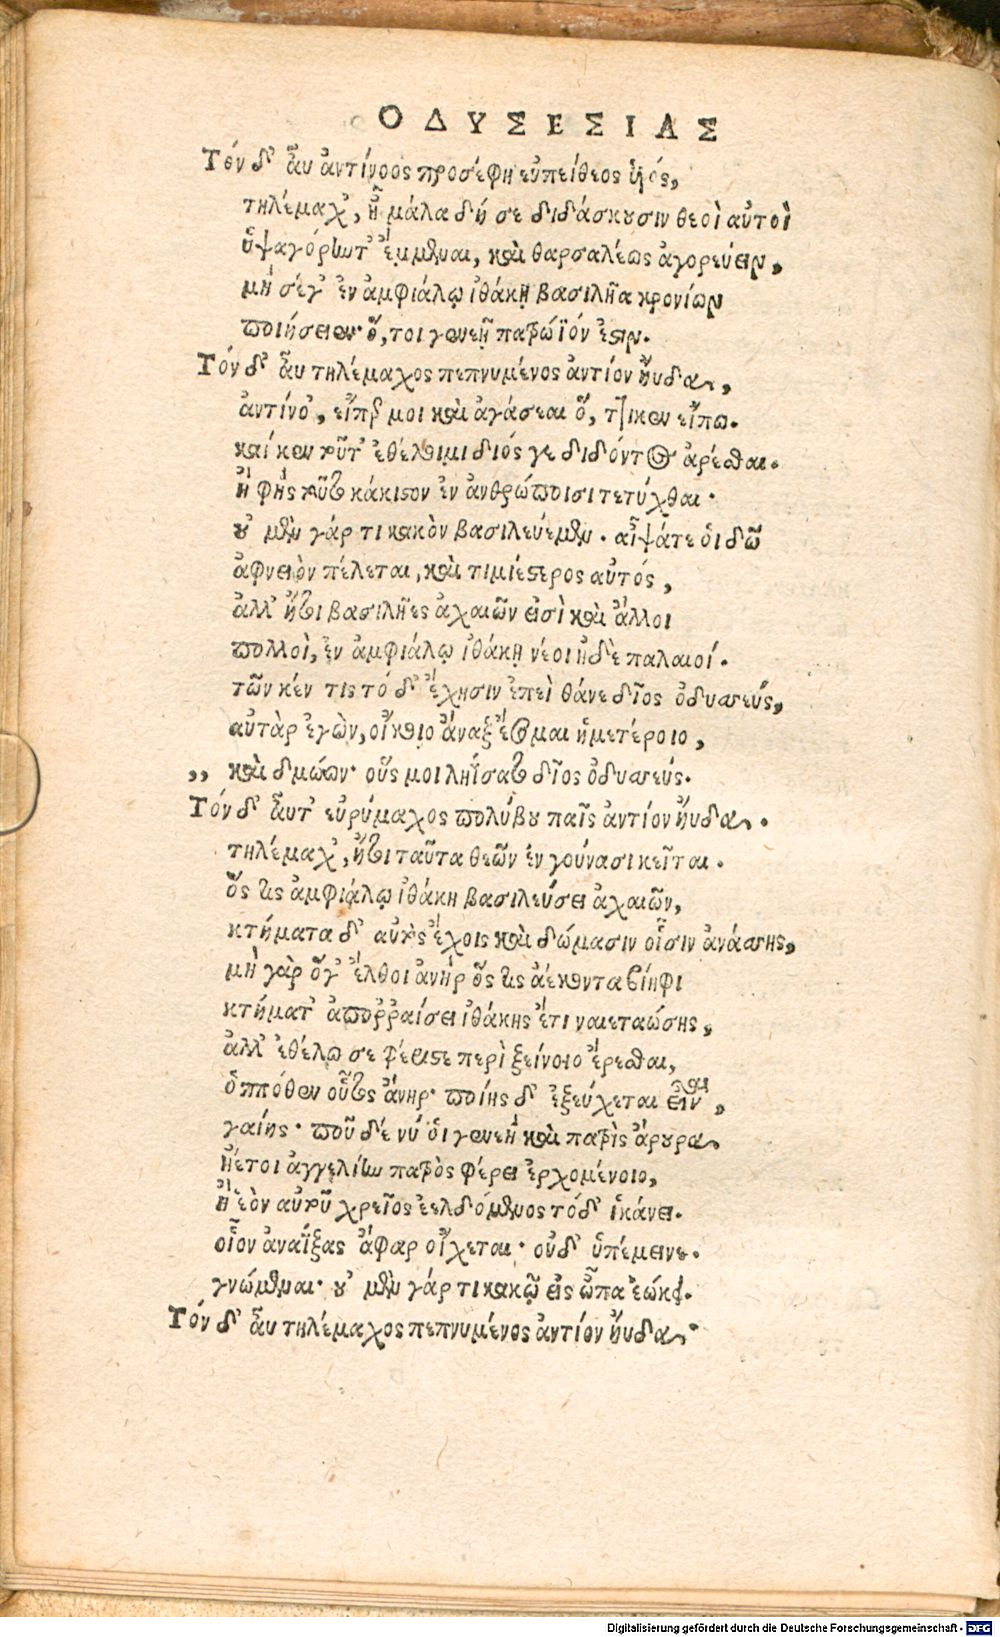 ΟΔΥΣΕΣΙΑΣ
Τὸν δ' αὖ ἀντίνοος προσέφη εὐπείθεος ὑιός,
τηλέμαχ', ἦ μάλα δή σε διδάσκουσιν θεοὶ αὐτοὶ
ὑψαγόρην τ' ἔμμεναι, καὶ θαρσαλέως ἀγορεύειν,
μὴ σέγ' ἐν ἀμφιάλῳ ἰθάκῃ βασιλῆα κρονίων
ποιήσειεν· ὅ, τοι γενεῇ πατρώϊόν ἐστιν.
Τὸν δ' αὖ τηλέμαχος πεπνυμένος ἀντίον ηὔδα,
ἀντίνο', εἴπερ μοι καὶ ἀγάσεαι ὅ, ττι κεν εἴπω.
καί κεν τοῦτ' ἐθέλοιμι διός γε διδόντος ἀρέσθαι.
ἢ φῂς τοῦτο κάκιστον ἐν ἀνθρώποισι τετύχθαι·
οὐ μὲν γάρ τι κακὸν βασιλεύεμεν. αἶψάτε ὁι δῶ
ἀφνειὸν πέλεται, καὶ τιμιέστερος αὐτός,
ἀλλ' ἤτοι βασιλῆες ἀχαιῶν εἰσὶ καὶ ἄλλοι
πολλοὶ, ἐν ἀμφιάλῳ ἰθάκῃ νέοι ἠδὲ παλαιοί.
τῶν κέν τις τό δ' ἔχησιν ἐπεὶ θάνε δῖος ὀδυσσεύς,
αὐτὰρ ἐγὼν, οἴκοιο ἄναξ ἔσομαι ἡμετέροιο,
,, καὶ δμώων· οὕς μοι ληΐσατο δῖος ὀδυσσεύς.
Τὸν δ' αὖτ' εὐρύμαχος πολύβου παῖς ἀντίον ηὔδα.
τηλέμαχ', ἤτοι ταῦτα θεῶν ἐν γούνασι κεῖται.
ὅς τις ἀμφιάλῳ ἰθάκη βασιλεύσει ἀχαιῶν,
κτήματα δ' αὐτὸς ἔχοις καὶ δώμασιν οἷσιν ἀνάσσης,
μὴ γὰρ ὅγ' ἔλθοι ἀνὴρ ὅς τις ἀέκοντα βίηφι
κτήματ' ἀποῤῥαίσει ἰθάκης ἔτι ναιεταώσης,
ἀλλ' ἐθέλω σε φέριστε περὶ ξείνοιο ἔρεσθαι,
ὁππόθεν οὗτος ἀνηρ· ποίης δ' ἐξεύχεται εἶναι,
γαίης· ποῦ δέ νύ ὁι γενεὴ καὶ πατρὶς ἄρουρα,
ἠέ τοι ἀγγελίην πατρὸς φέρει ἐρχομένοιο,
ἢ ἑὸν αὐτοῦ χρεῖος ἐελδόμενος τόδ' ἱκάνει.
οἷον ἀναΐξας ἄφαρ οἴχεται· οὐδ' ὑπέμεινε.
γνώμεναι· οὐ μὲν γάρ τι κακῷ εἰς ὦπα ἐῴκει.
Τὸν δ' αὖ τηλέμαχος πεπνυμένος ἀντίον ηὔδα·
Digitalisierung gefördert durch die Deutsche Forschungsgemeinschaft - DFG